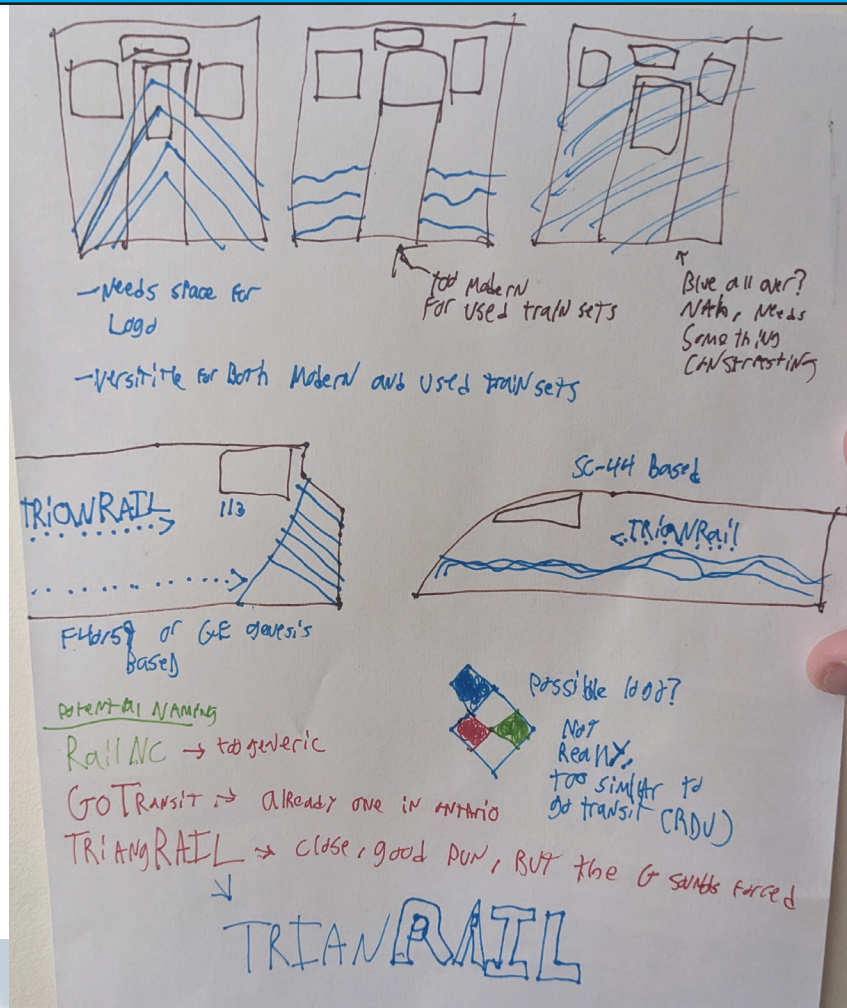 -Needs space for
Logo
-Versitile for Both Modern and used train sets
too Modern
for used train sets
Blue all over?
NAh, Needs
Something
CONStrasting
TRIANRAIL
113
SC-44 Based
TRIANRail
F40r59 or GE genesis
Based
Potential NAMING
RailNC → too generic
GOTRANSIT → already one in ontario
TRiANgRAIL → close, good PUN, BUT the G sounds forced
possible logo?
Not
Really,
too similar to
go transit (RDU)
TRIANRAIL